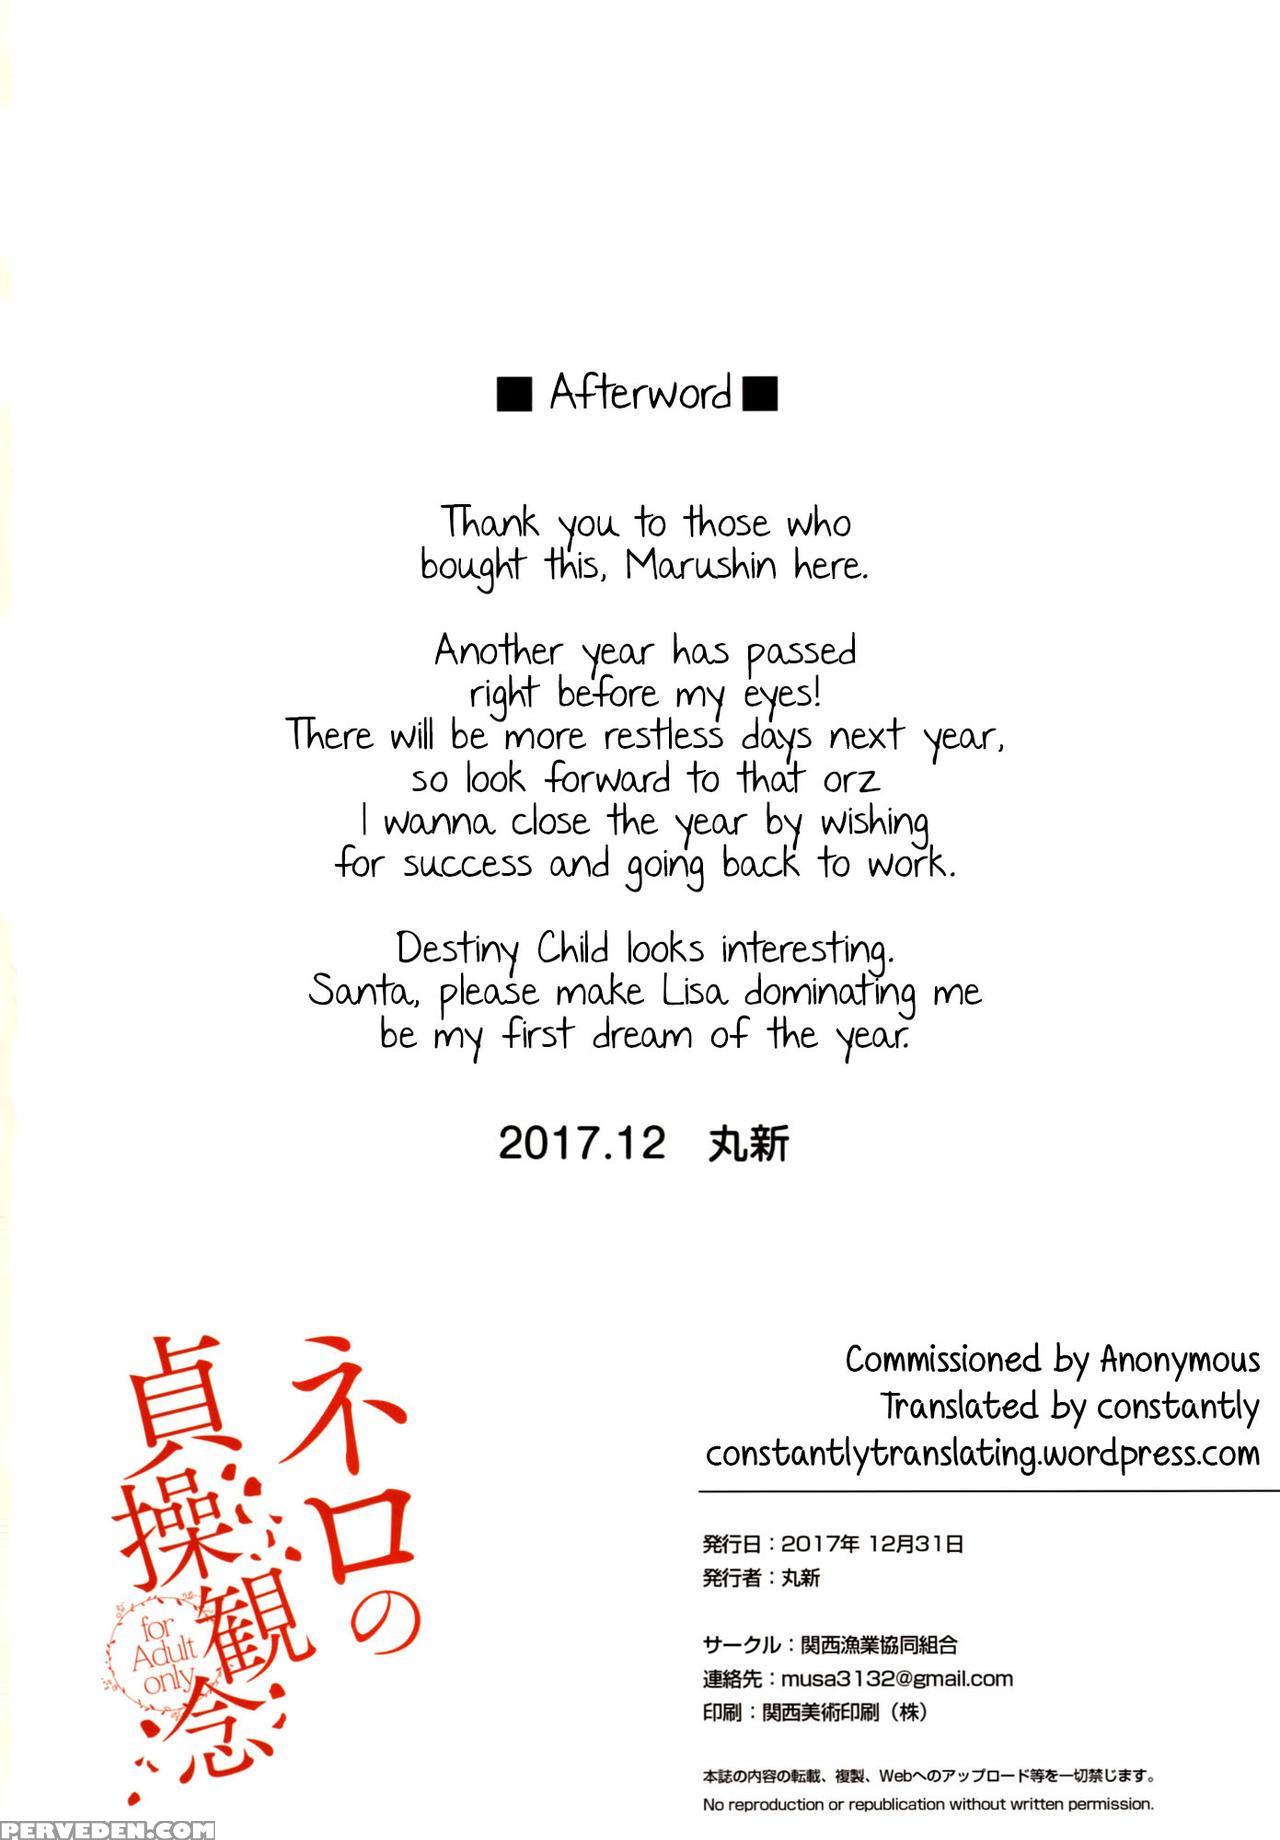 ■ Afterword ■
Thank you to those who
bought this, Marushin here.
Another year has passed
right before my eyes!
There will be more restless days next year,
so look forward to that orz
I wanna close the year by wishing
for success and going back to work.
Destiny Child looks interesting.
Santa, please make Lisa dominating me
be my first dream of the year.
2017.12 丸新
ネロの
貞操観念
for
Adult
only
Commissioned by Anonymous
Translated by constantly
constantlytranslating.wordpress.com
発行日：2017年 12月31日
発行者：丸新
サークル：関西漁業協同組合
連絡先：musa3132@gmail.com
印刷：関西美術印刷（株）
本誌の内容の転載、複製、Webへのアップロード等を一切禁じます。
No reproduction or republication without written permission.
PERVEDEN.COM